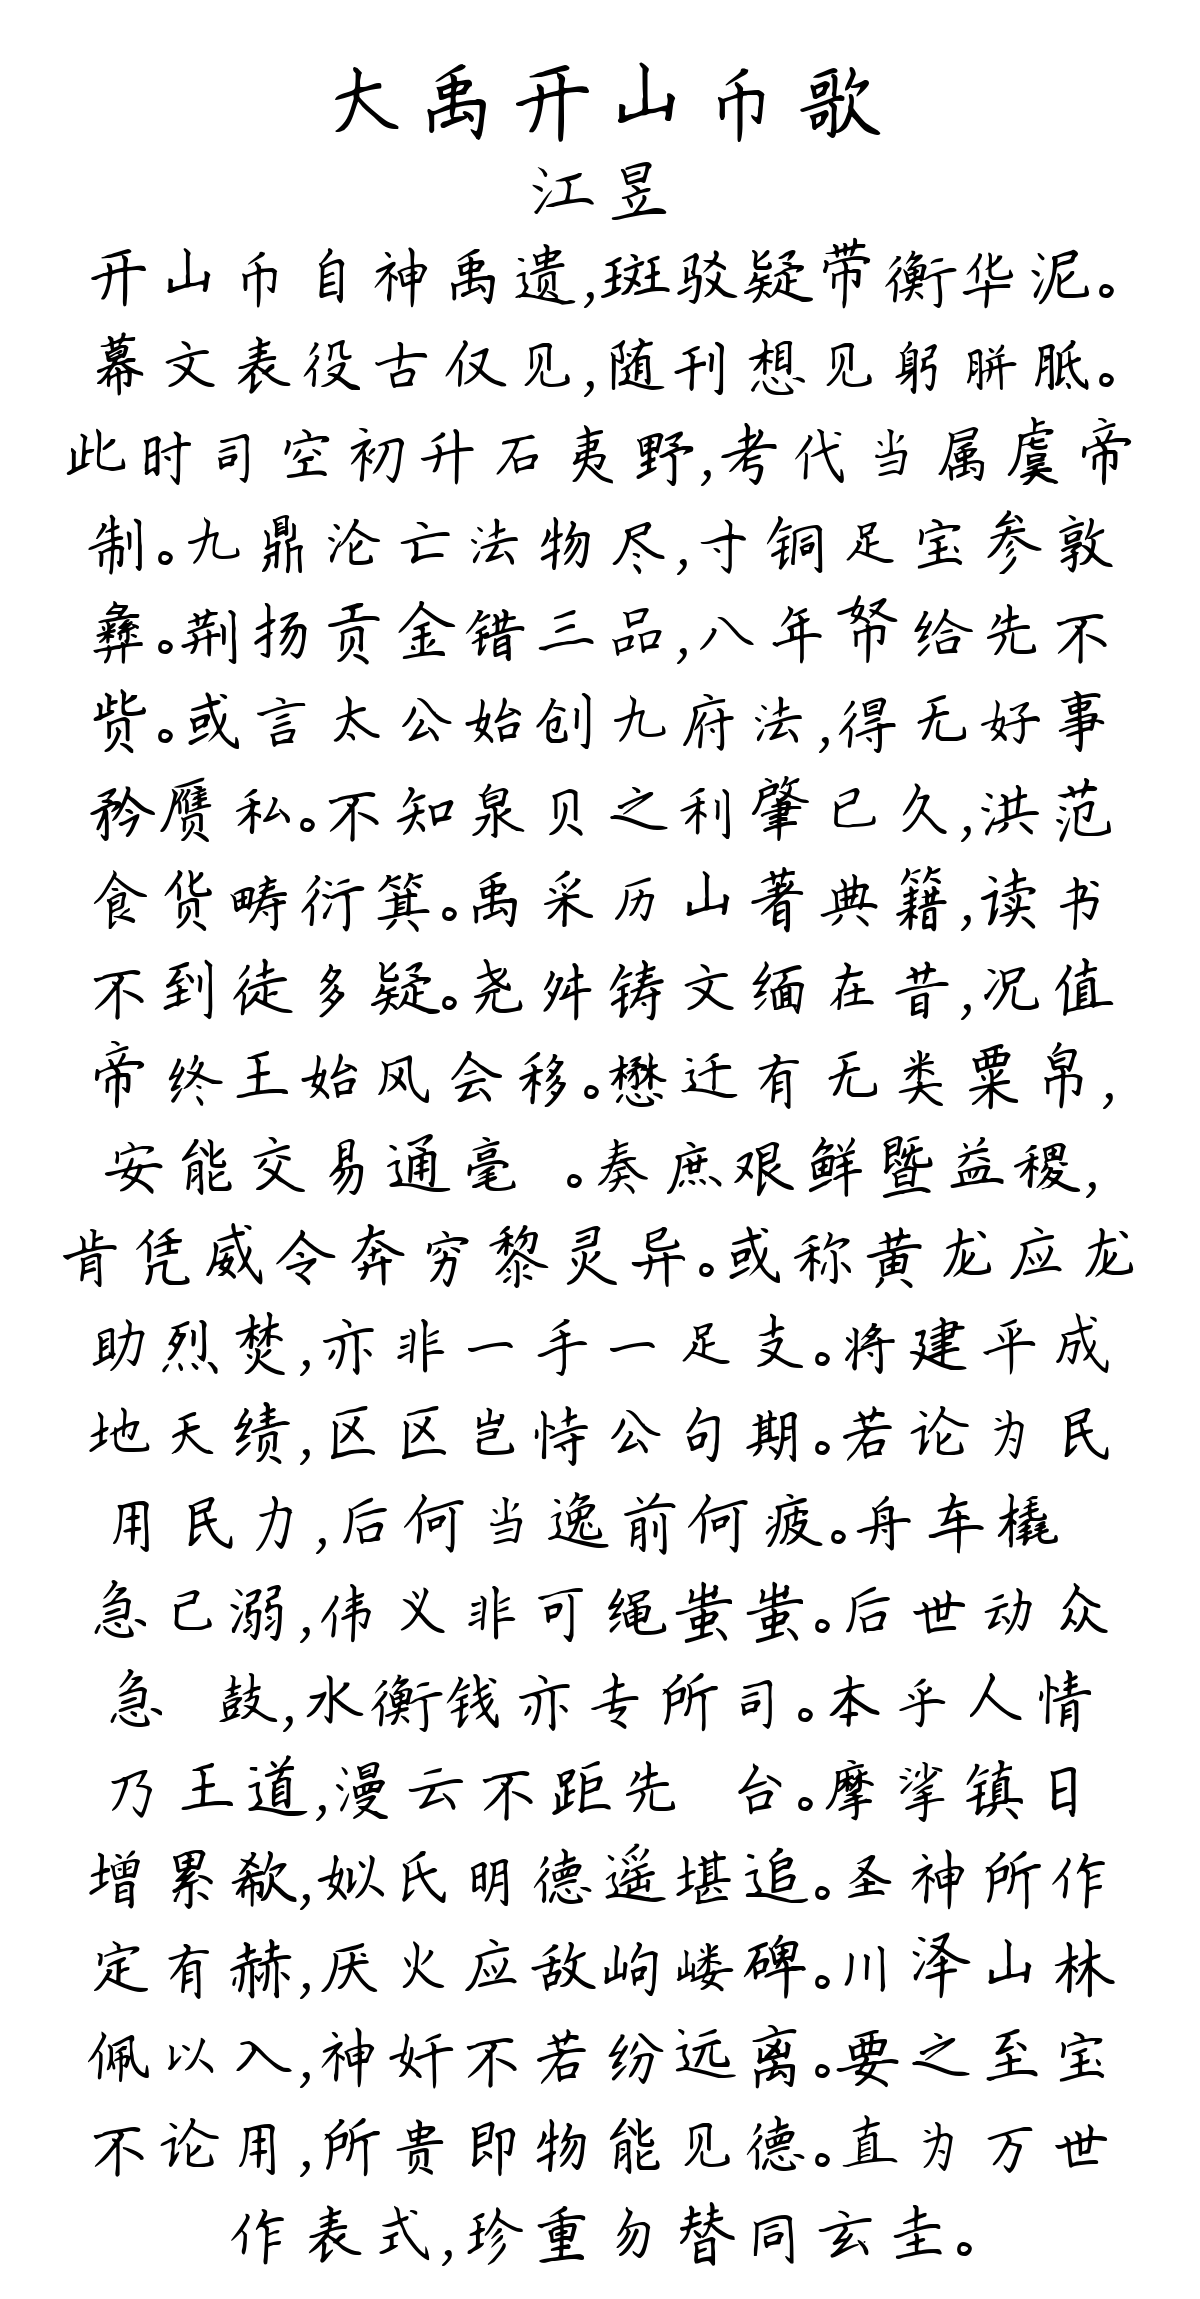 大禹开山币歌
江昱
开山币自神禹遗,斑驳疑带衡华泥。
幕文表役古仅见,随刊想见躬胼胝。
此时司空初升石夷野,考代当属虞帝
制。九鼎沦亡法物尽,寸铜足宝参敦
彝。荆扬贡金错三品,八年帑给先不
赀。或言太公始创九府法,得无好事
矜赝私。不知泉贝之利肇已久,洪范
食货畴衍箕。禹采历山著典籍,读书
不到徒多疑。尧舛铸文缅在昔,况值
帝终王始风会移。懋迁有无类粟帛,
安能交易通毫 。奏庶艰鲜暨益稷,
肯凭威令奔穷黎灵异。或称黄龙应龙
助烈焚,亦非一手一足支。将建平成
地天绩,区区岂恃公句期。若论为民
用民力,后何当逸前何疲。舟车橇
急已溺,伟义非可绳蚩蚩。后世动众
急 鼓,水衡钱亦专所司。本乎人情
乃王道,漫云不距先 台。摩挲镇日
增累欷,姒氏明德遥堪追。圣神所作
定有赫,厌火应敌岣嵝碑。川泽山林
佩以入,神奸不若纷远离。要之至宝
不论用,所贵即物能见德。直为万世
作表式,珍重勿替同玄圭。